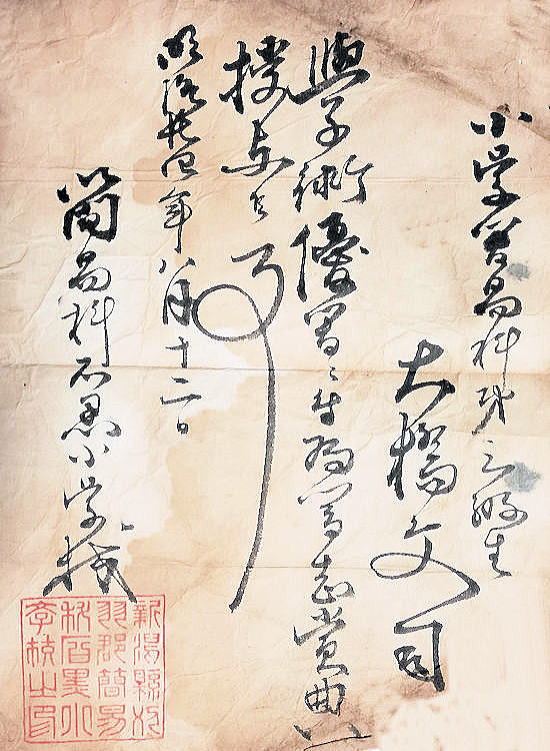 小学簡易科第三級生
大橋文司
學術優等ニ付為賞典
授与候事
明治廿四年八月十二日
簡易科石黒小学校
新潟縣刈
羽郡簡易
科石黒小
學校之印